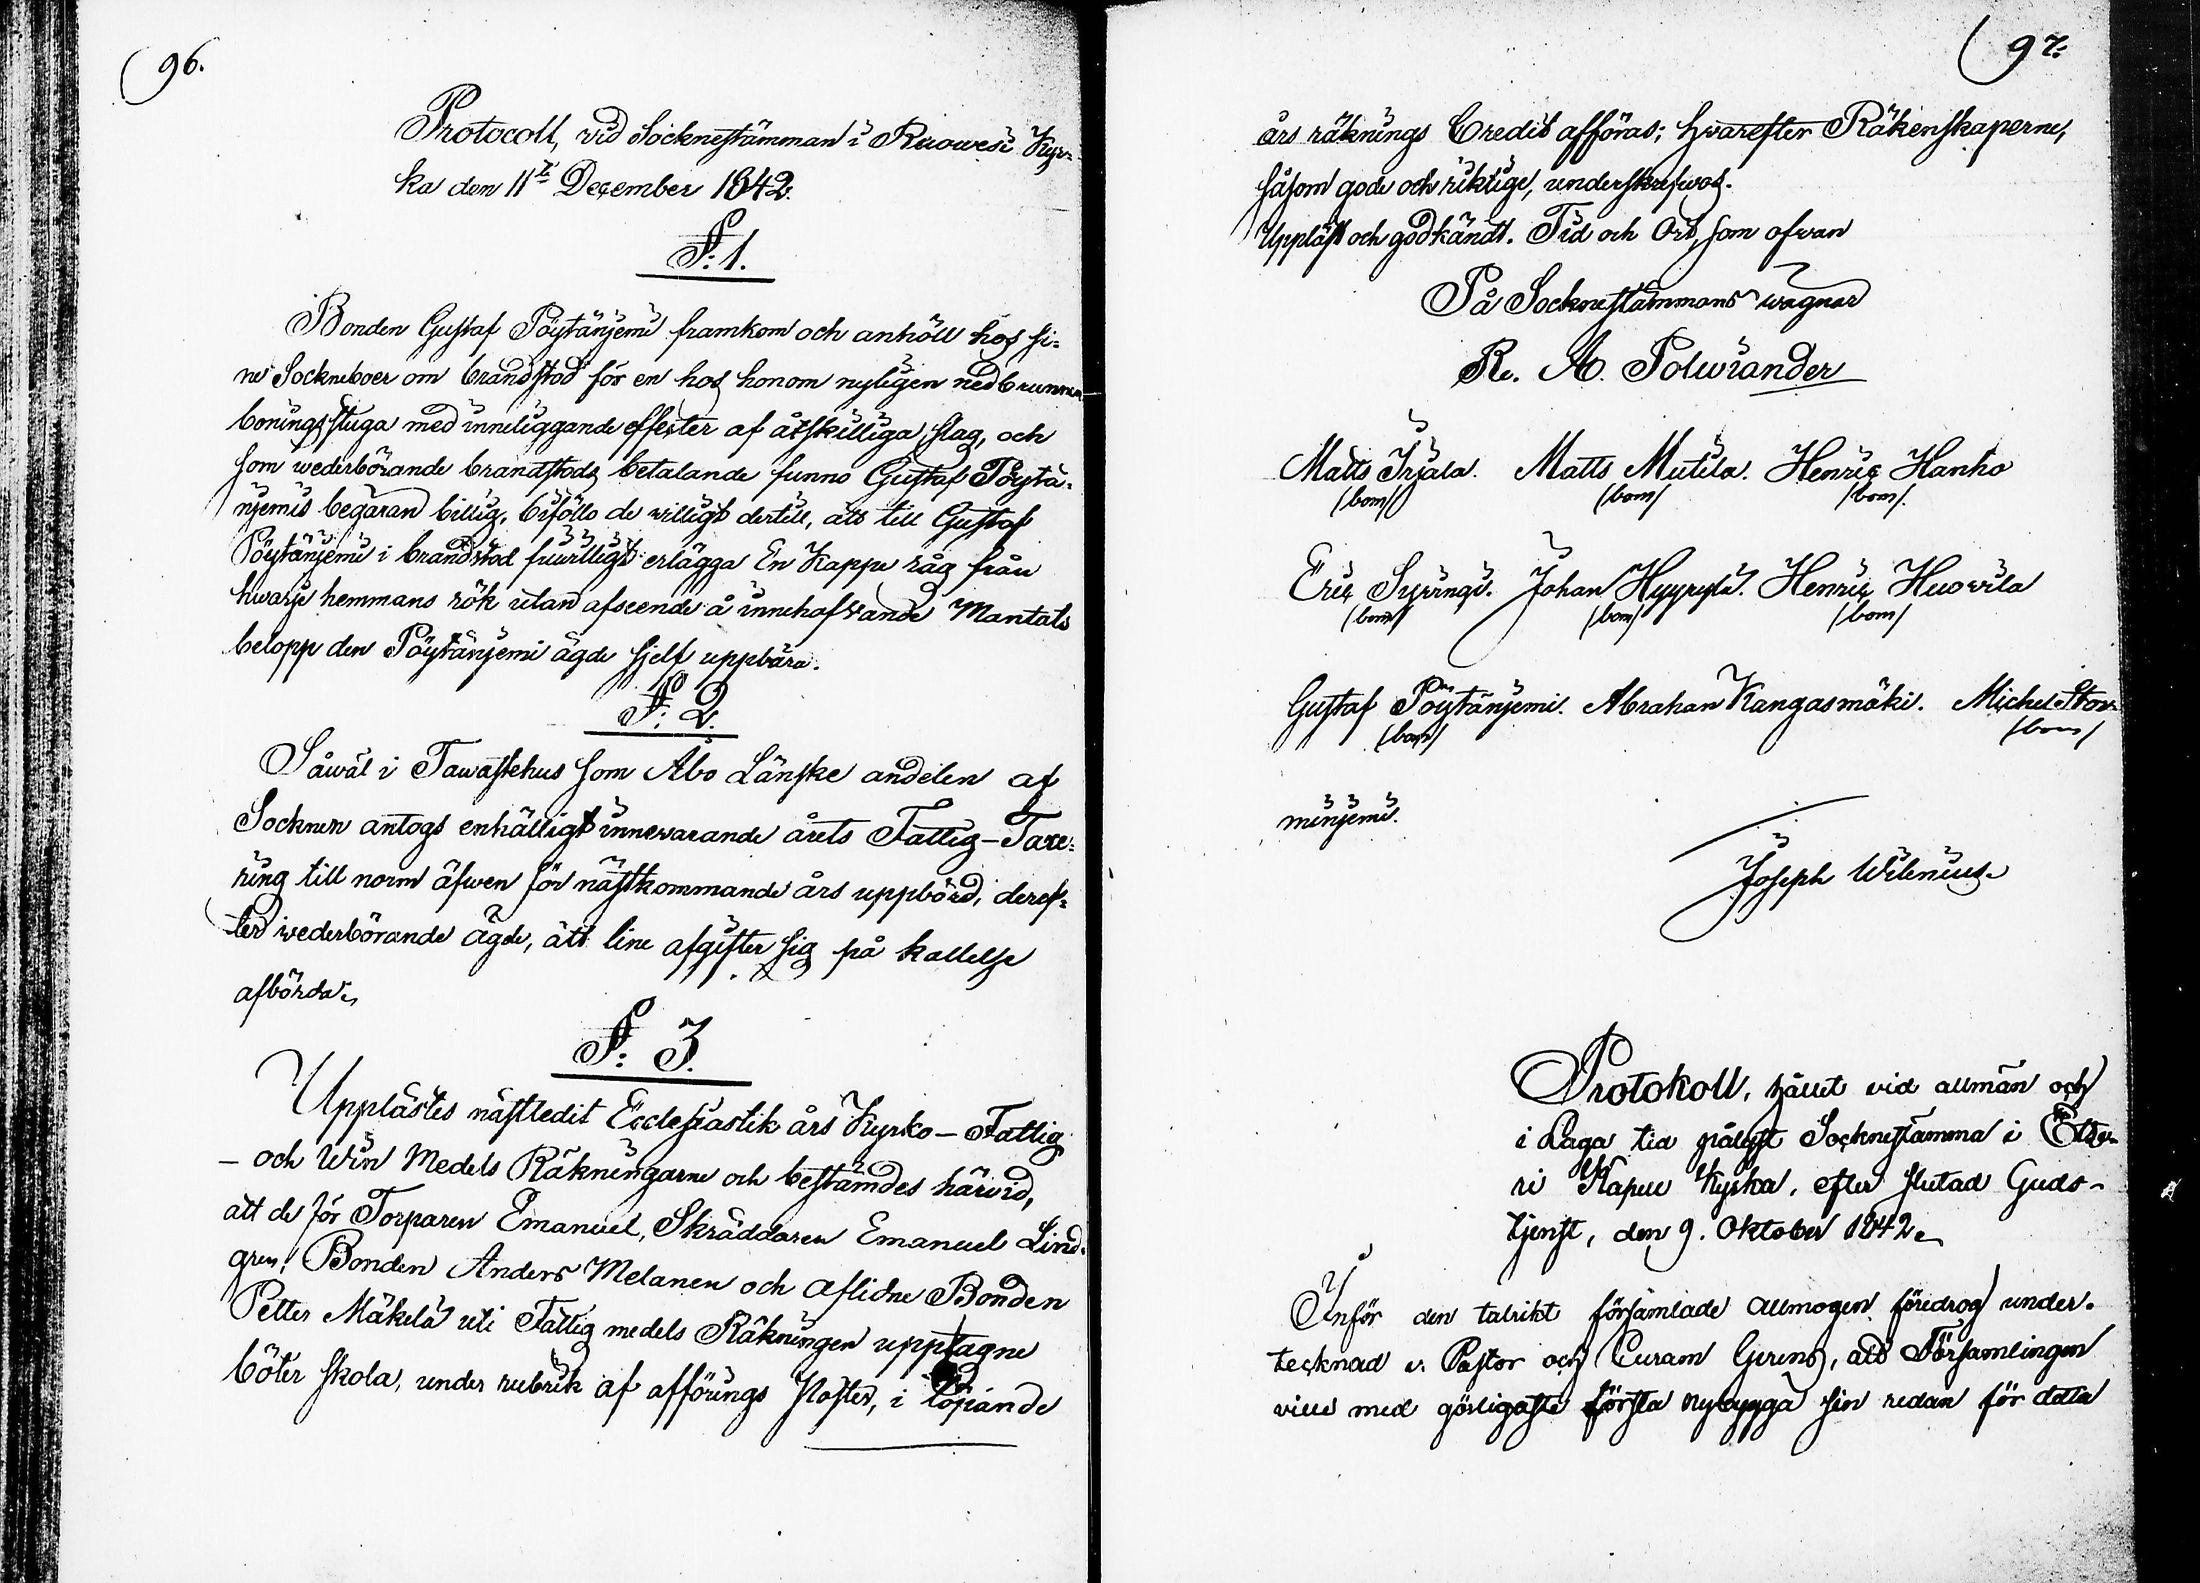 96.
Protocoll, vid Socknestämman i Ruowesi Kyr-
ka den 11te December 1842.
§. 1.
Bonden Gustaf Pöytäniemi framkom och anhöll hos si-
ne Sockneboer om brandstod för en hos honom nyligen nedbrunnen
boningsstuga med inneliggande effecter af åtskilliga slag, och
som wederbörande brandstods betalande funno Gustaf Pöytä-
niemis begäran billig, biföllo de willigt dertill, att till Gustaf
Pöytäniemi i brandstod friwilligt erlägga En Kappe råg från
hwarje hemmans rök utan afseende å innehafwande Mantals
belopp den Pöytäniemi ägde sjelf uppbära.
§. 2.
Såwäl i Tawastehus som Åbo Länske andelen af
Socknen antogs enhälligt innewarande årets Fattig-Taxe-
ring till norm äfwen för nästkommande års uppbörd, deref-
ter wederbörande ägde, att sine afgifter sig på kallelse
afbörda.
§. 3.
Upplästes nästledit Ecclesiastik års Kyrko- Fattig
- och Win Medels Räkningarne och bestämdes härvid,
att de för Torparen Emanuel, Skräddaren Emanuel Lind-
gren, Bonden Anders Melanen och aflidne Bonden
Petter Mäkelä uti Fattig medels Räkningen upptagne
böter skola, under rubrik af afförings Poster, i löpande
97.
års räknings Credit afföras; hwarefter Räkenskaperne,
såsom gode och riktige, underskrefwos.
Uppläst och godkändt. Tid och Ort, som ofwan
På Socknestämmans wägnar
R. A. Polwiander
Matts Ihala. Matts Mutila. Henric Hanho
/bom/ /bom/ /bom/.
Eric Syvingi. Johan Hyyrylä. Henric Huowila
/bom/ /bom/ /bom/
Gustaf Pöytäniemi. Abraham Kangasmäki. Michel Stor-
/bom/ /bom/
miniemi.
Joseph Wilenius.
Protokoll, hållet vid allmän och
i Laga tid pålyst Socknestämma i Ätse-
ri Kapell Kyrka, efter slutad Guds-
tjenst, den 9. Oktober 1842.
Inför den talrikt församlade allmogen föredrog under-
tecknad v. Pastor och Curam Gerens, att Församlingen
ville med görligaste första nybygga sin redan för detta